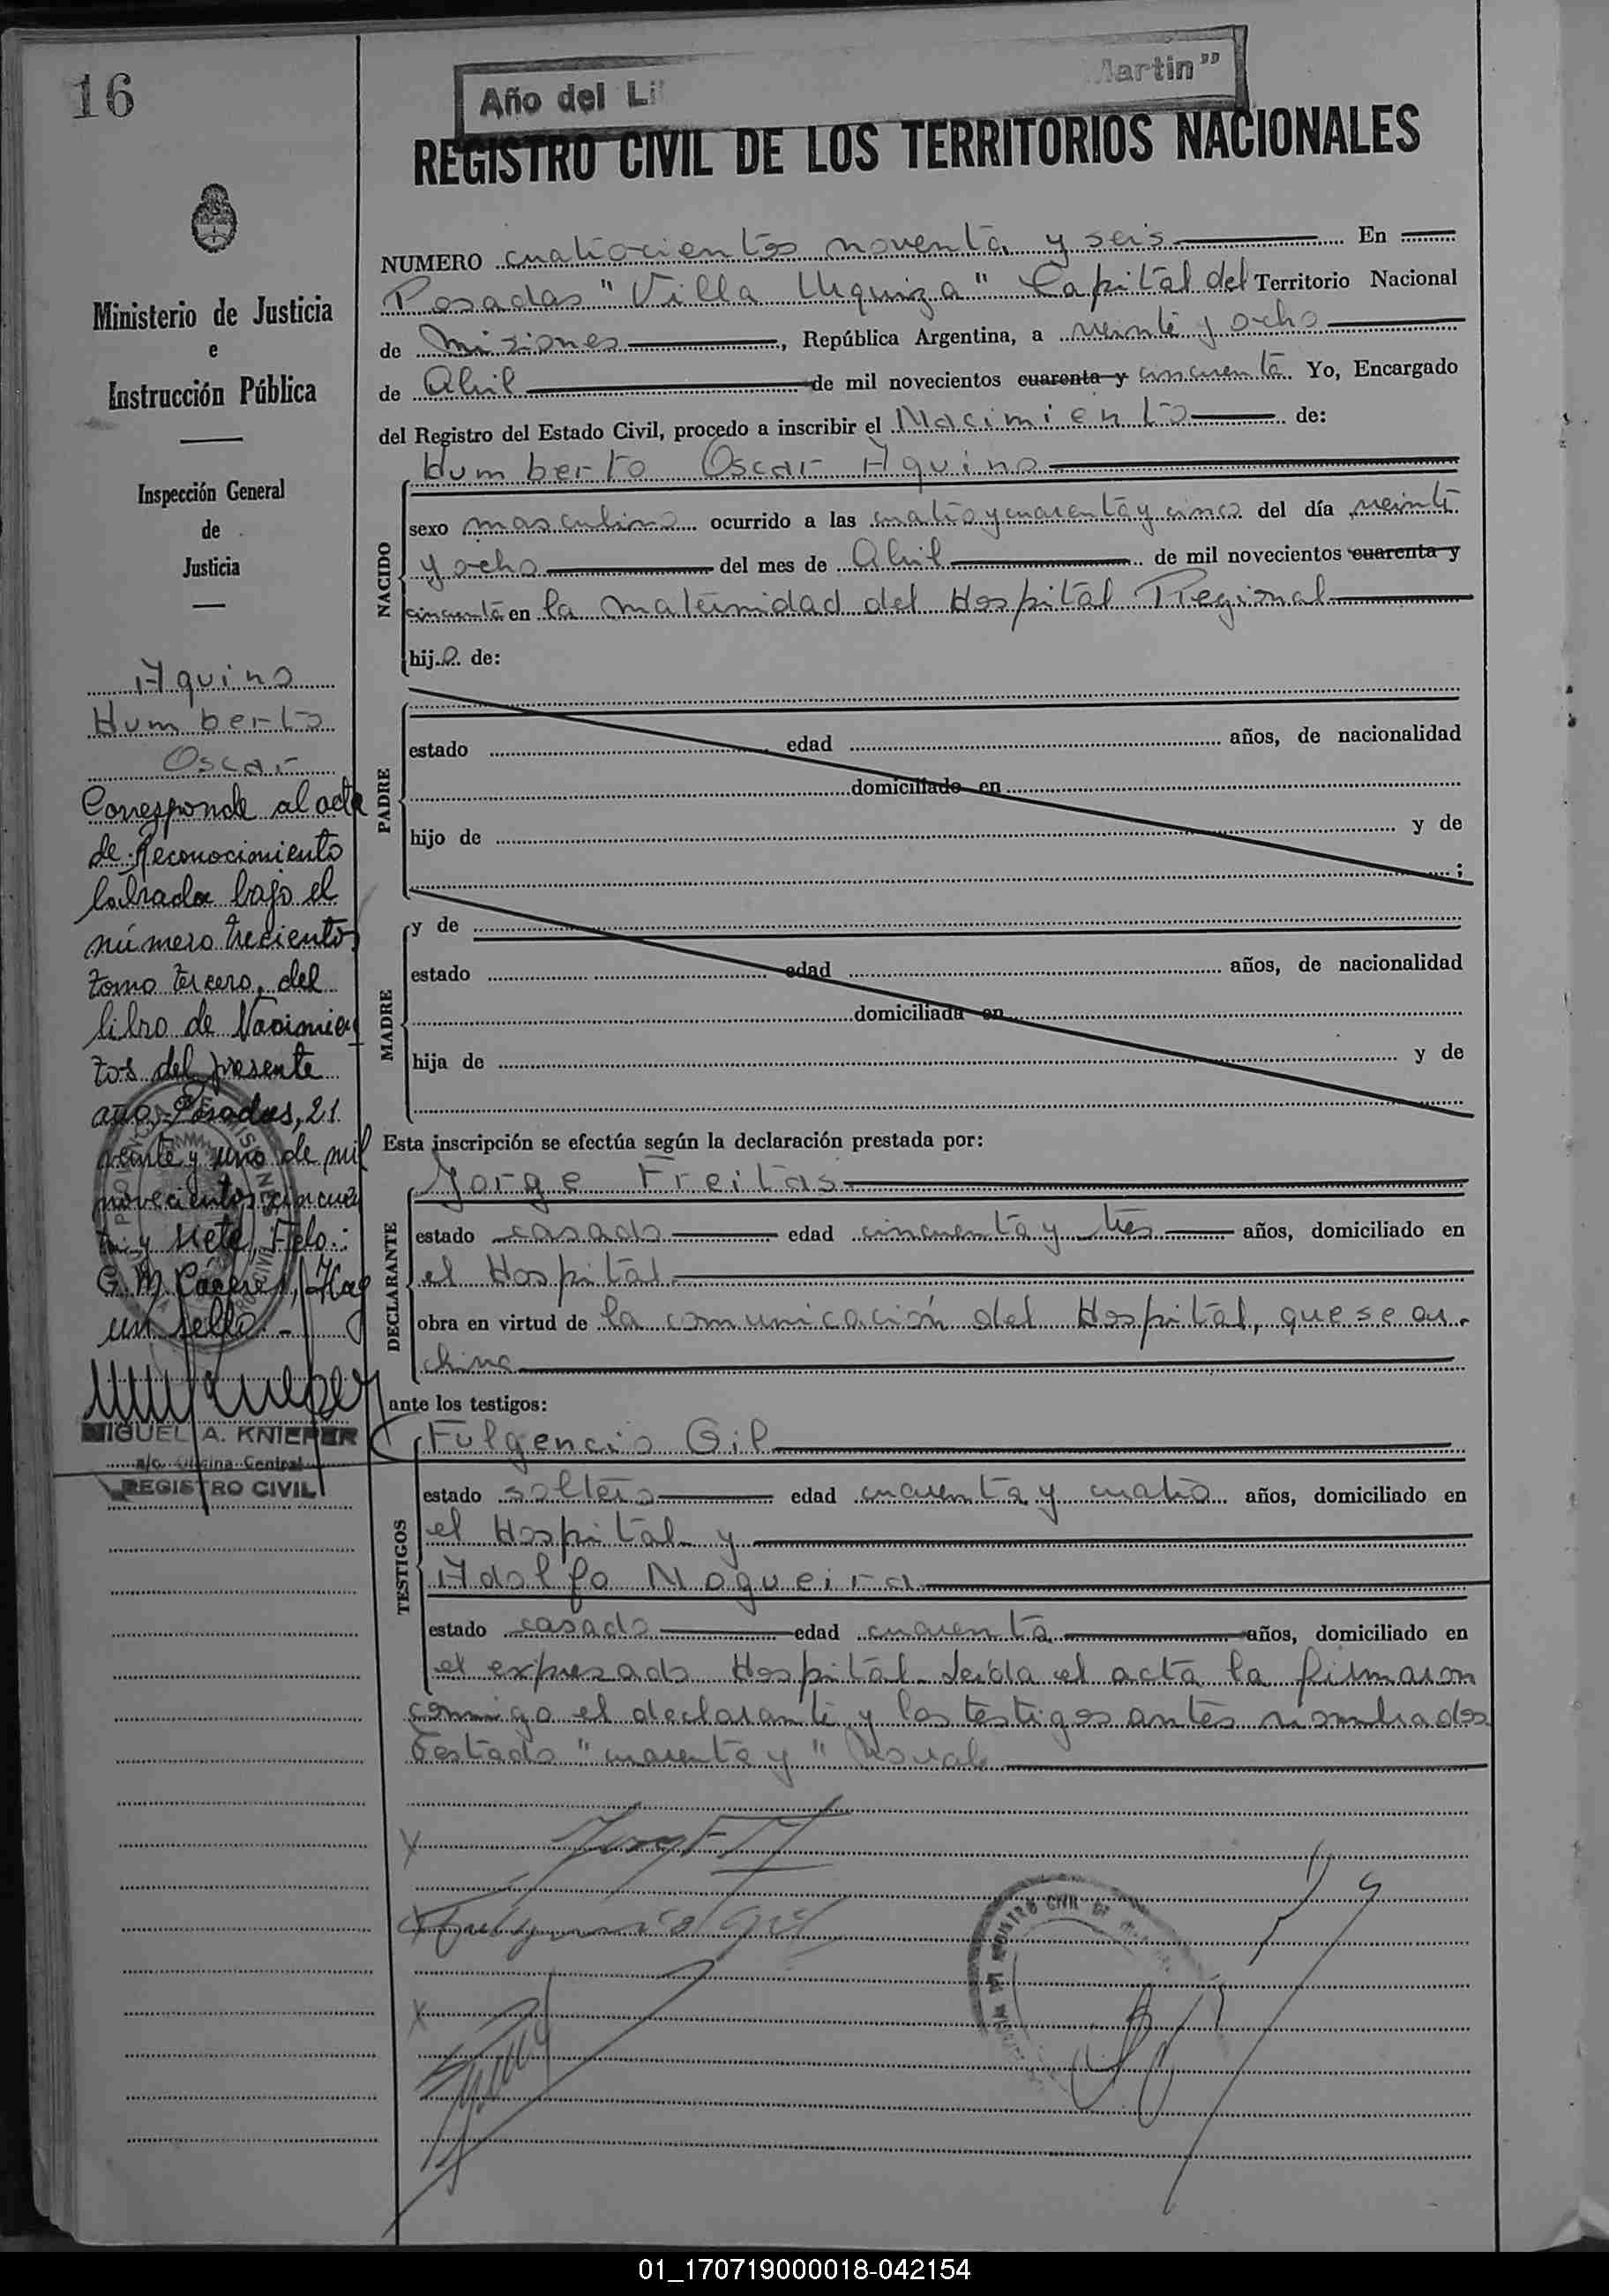 16
Año del Li Martin"
REGISTRO CIVIL DE LOS TERRITORIOS NACIONALES
Ministerio de Justicia
e
Instrucción Pública
Inspección General
de
Justicia
Aquino
Humberto
Oscar
Corresponde al acta
de Reconocimiento
labrada bajo el
número treciento
tomo tercero, del
libro de Nacimien
tos del presente
año, Posadas, 21
veinte y uno de mil
novecientos cincuen
ta y siete, Fdo.:
G. M. Cáceres, Hay
un sello. -
MIGUEL A. KNIEPER
a/c. Oficina Central
REGISTRO CIVIL
NUMERO cuatrocientos noventa y seis En
Posadas "Villa Urquiza" Capital del Territorio Nacional
de Misiones, República Argentina, a veinte y ocho
de Abril de mil novecientos cuarenta y cincuenta Yo, Encargado
del Registro del Estado Civil, procedo a inscribir el Nacimiento de:
Humberto Oscar Aquino
NACIDO
sexo masculino ocurrido a las cuatro y cuarenta y cinco del día veinte
y ocho del mes de Abril de mil novecientos cuarenta y
cincuenta en la maternidad del Hospital Regional
hijo de:
PADRE
estado edad años, de nacionalidad
domiciliado en
hijo de y de
;
MADRE
y de
estado edad años, de nacionalidad
domiciliada en
hija de y de
Esta inscripción se efectúa según la declaración prestada por:
DECLARANTE
Jorge Freitas
estado casado edad cincuenta y tres años, domiciliado en
el Hospital
obra en virtud de la comunicación del Hospital, que se ar-
chiva
ante los testigos:
TESTIGOS
Fulgencio Gil
estado soltero edad cuarenta y cuatro años, domiciliado en
el Hospital y
Adolfo Nogueira
estado casado edad cuarenta años, domiciliado en
el expresado Hospital. Leída el acta la firmaron
conmigo el declarante y los testigos antes nombrados
Testado "cuarenta y" No vale
Fulgencio Gil
REGISTRO CIVIL DE
01_170719000018-042154